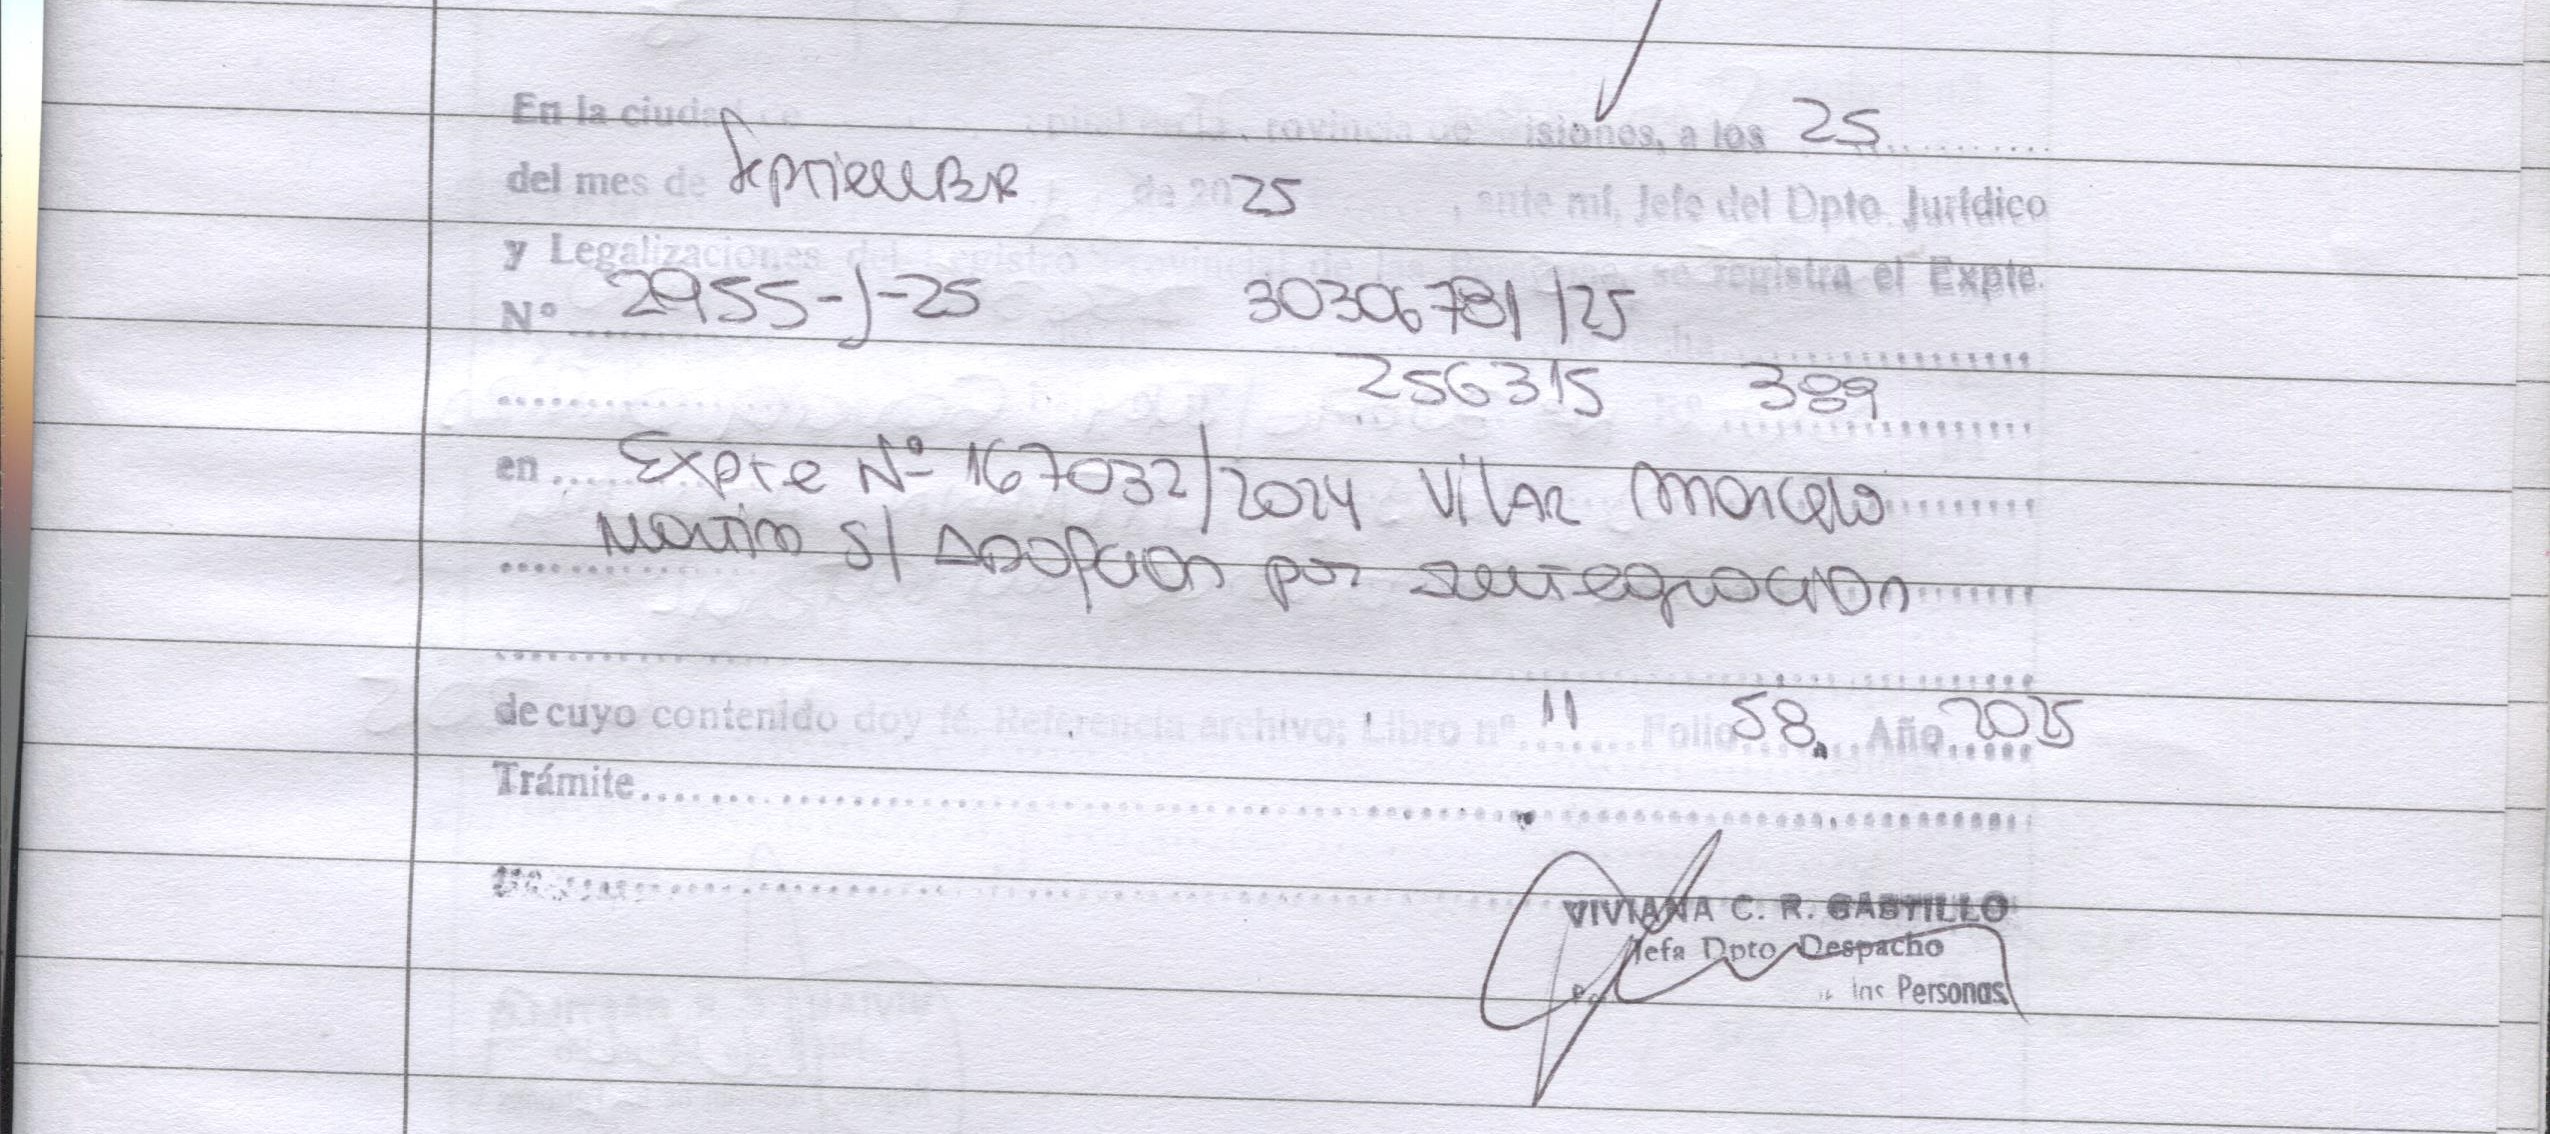 En la ciudad de Provincia de Misiones, a los 25
del mes de Septiembre de 2025, ante mí, Jefe del Dpto. Jurídico
y Legalizaciones del Registro de las se registra el Expte.
Nº 2955-J-25 30306781/25
256315 389
en Expte Nº 167032/2024 Vilar Marcelo
Martin S/ Adopcion por Integracion
de cuyo contenido doy fé. Referencia archivo; Libro nº 11 Folio 58 Año 2025
Trámite
VIVIANA C. R. CASTILLO
Jefa Dpto Despacho
las Personas